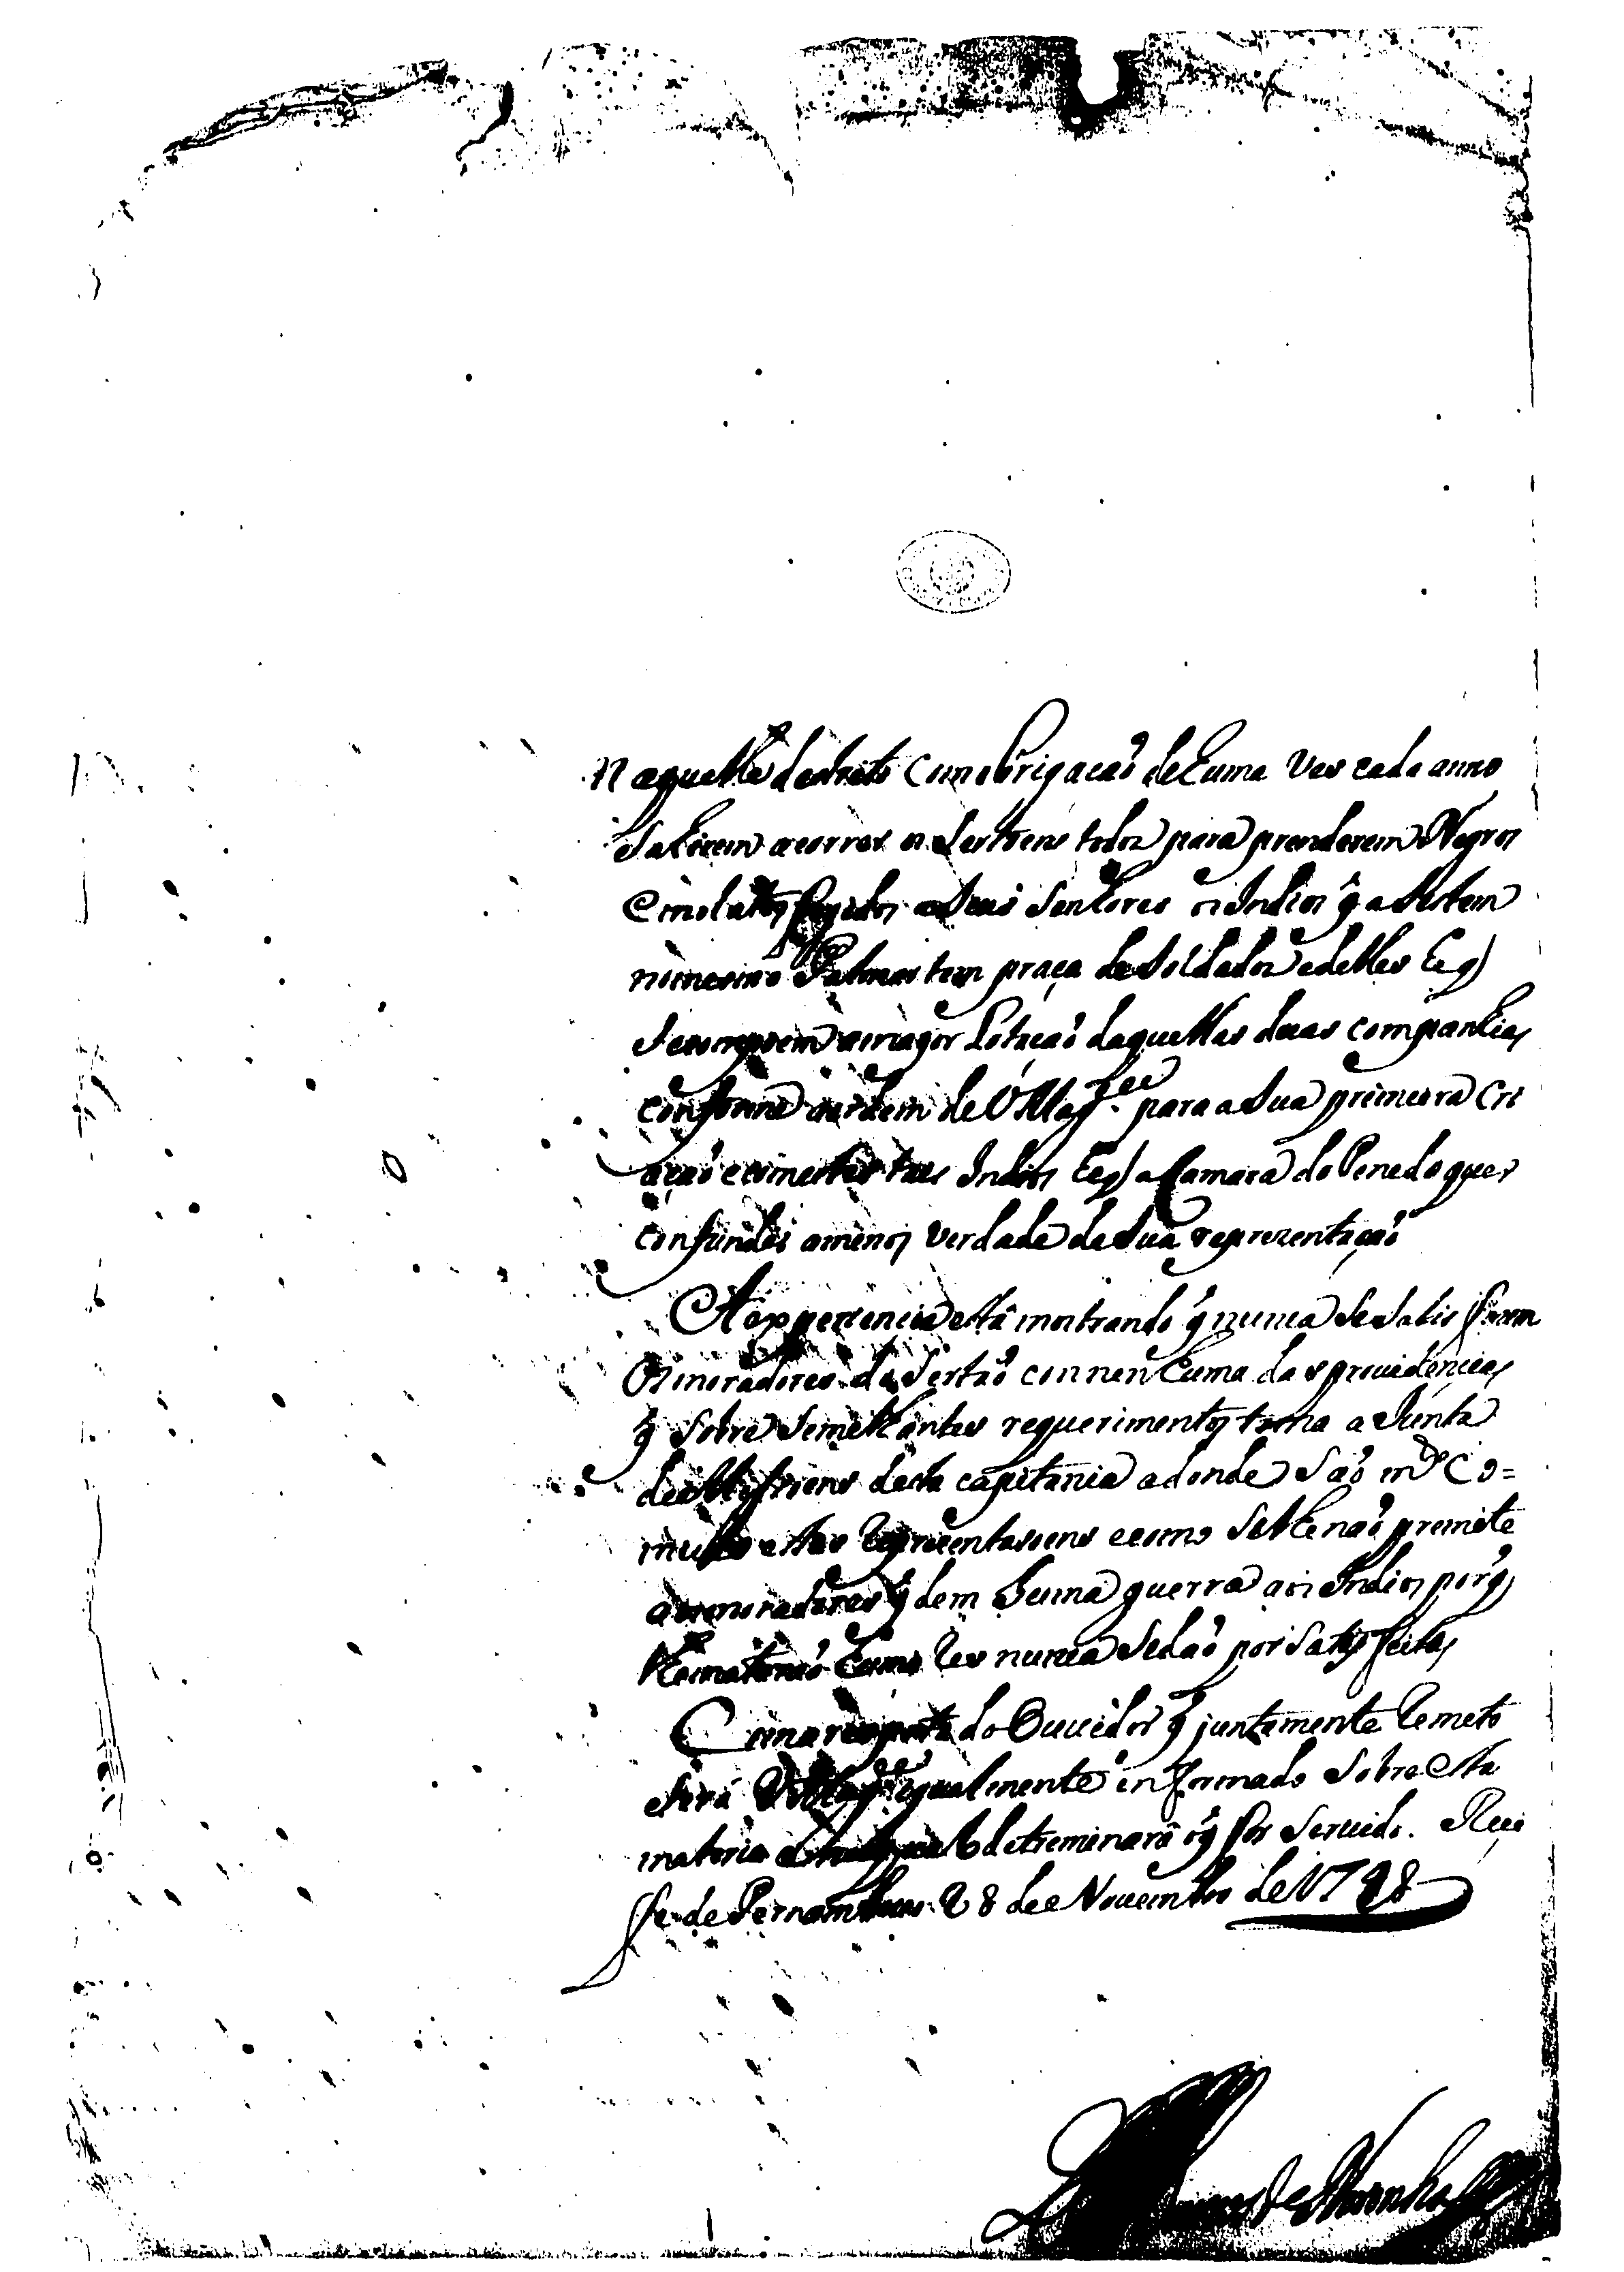 naquelle destrito com obrigacaõ de huma ves cada anno
sahirem acorrer os sertoens todos para prenderem Negros
e mulatos fugidos a seus senhores os Indios q̃ asistem
no mesmo Palmar tem praça de soldados e delles he q̃
se compoem a mayor Lotacaõ daquellas duas companhias
conforme a ordem de V Mag.de para a sua primeira cri
açaõ e com estes taes Indios he q̃ a Camara do Penedo quer
confundir a menos verdade de sua reprezentaçaõ
A experiencia está mostrando q̃ nunca se satis fazem
os moradores do Sertaõ con nen huma das providencias
q̃ sobre semelhantes requerimentos toma a Junta
de Missoens desta capitania adonde saõ m.tas co=
muas estas Reprezentasoens e como se lhe naõ premite
aos moradores q̃ dem huma guerra aos Indios porq̃
lhe mataraõ huma Res nunca se daõ por satisfeitos
Com a reposta do Ouvidor q̃ juntamente Remeto
será V Mag.de igualmente informado sobre esta
materia detreminará o q̃ for servido. Reci
fe de Pernambuco 28 de Novembro de 1728